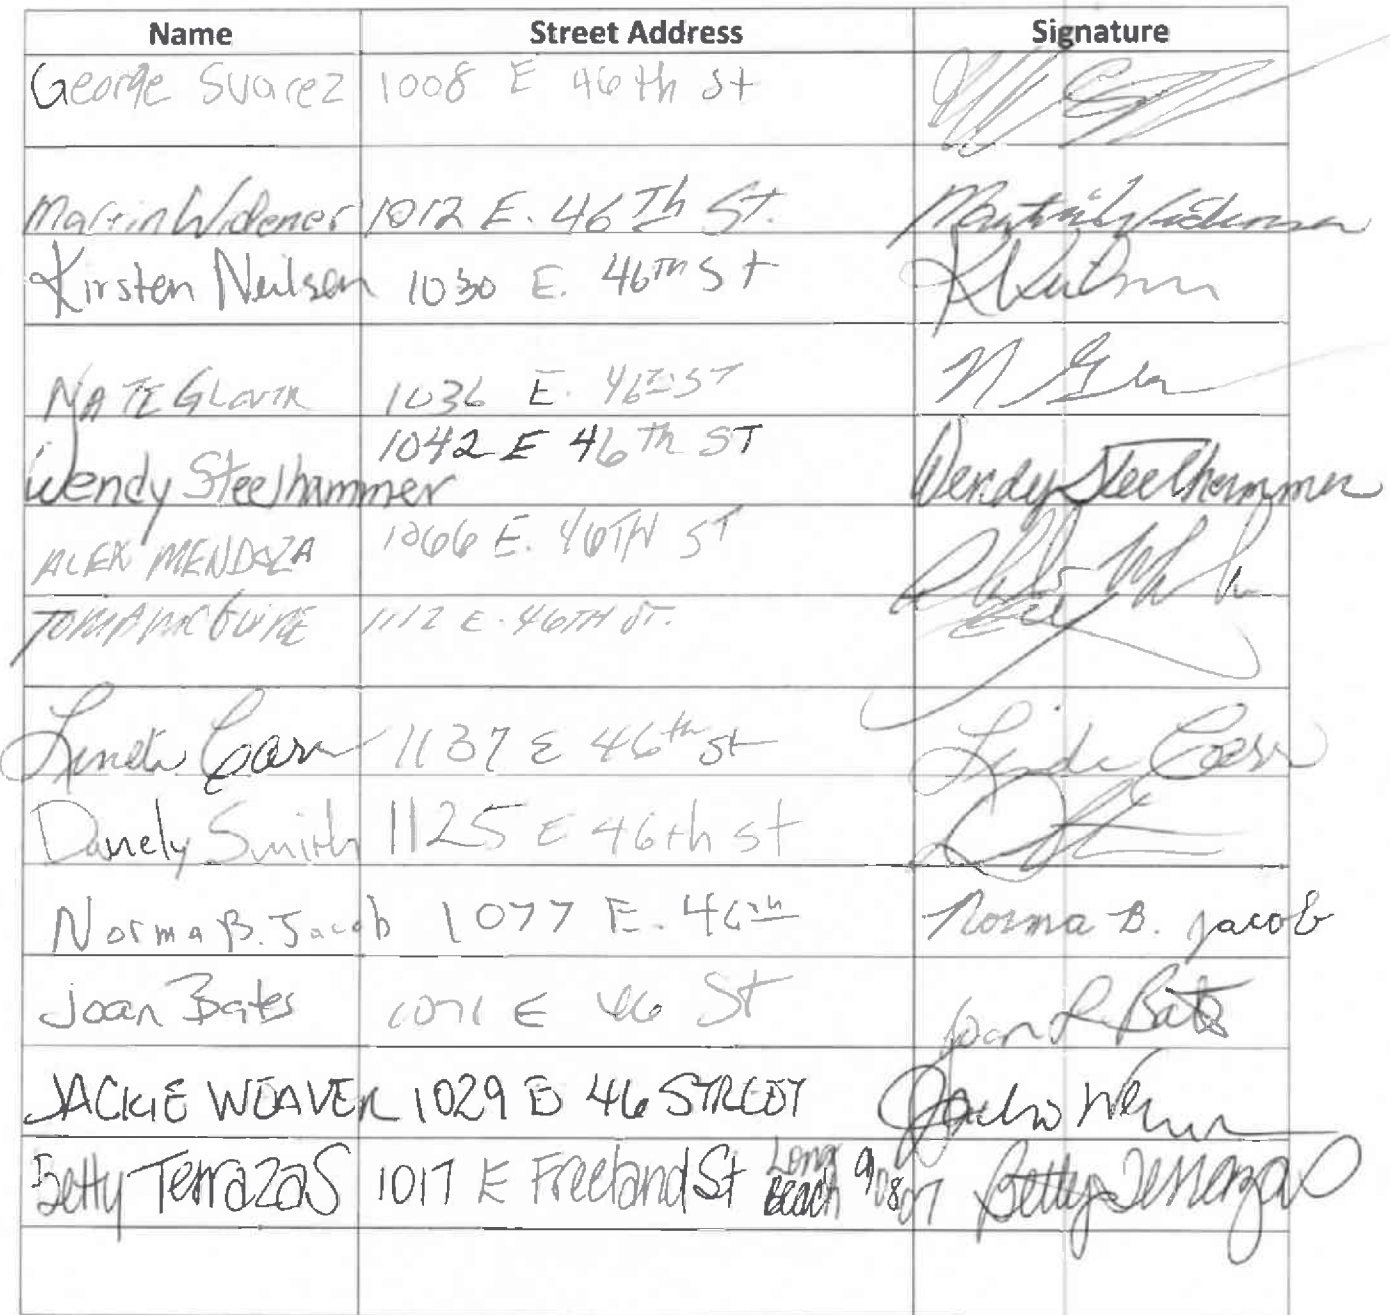 Name Street Address Signature
George Suarez 1008 E 46th St
Martin Widener 1012 E. 46Th St. Martin Widener
Kirsten Neilsen 1030 E. 46th St K Neilsen
NATE GLOVER 1036 E. 46TH ST N Glover
Wendy Steelhammer 1042 E 46th ST Wendy Steelhammer
ALEX MENDOZA 1066 E. 46TH ST
TOM A McGUIRE 1112 E. 46TH ST.
Linda Carr 1137 E 46th St Linda Carr
Danely Smith 1125 E 46th St
Norma B. Jacob 1077 E. 46th Norma B. Jacob
Joan Bates 1071 E 46 St Joan L Bates
JACKIE WEAVER 1029 E 46 STREET Jackie Weaver
Betty Terrazas 1017 E Freeland St Long Beach 90807 Betty Terrazas